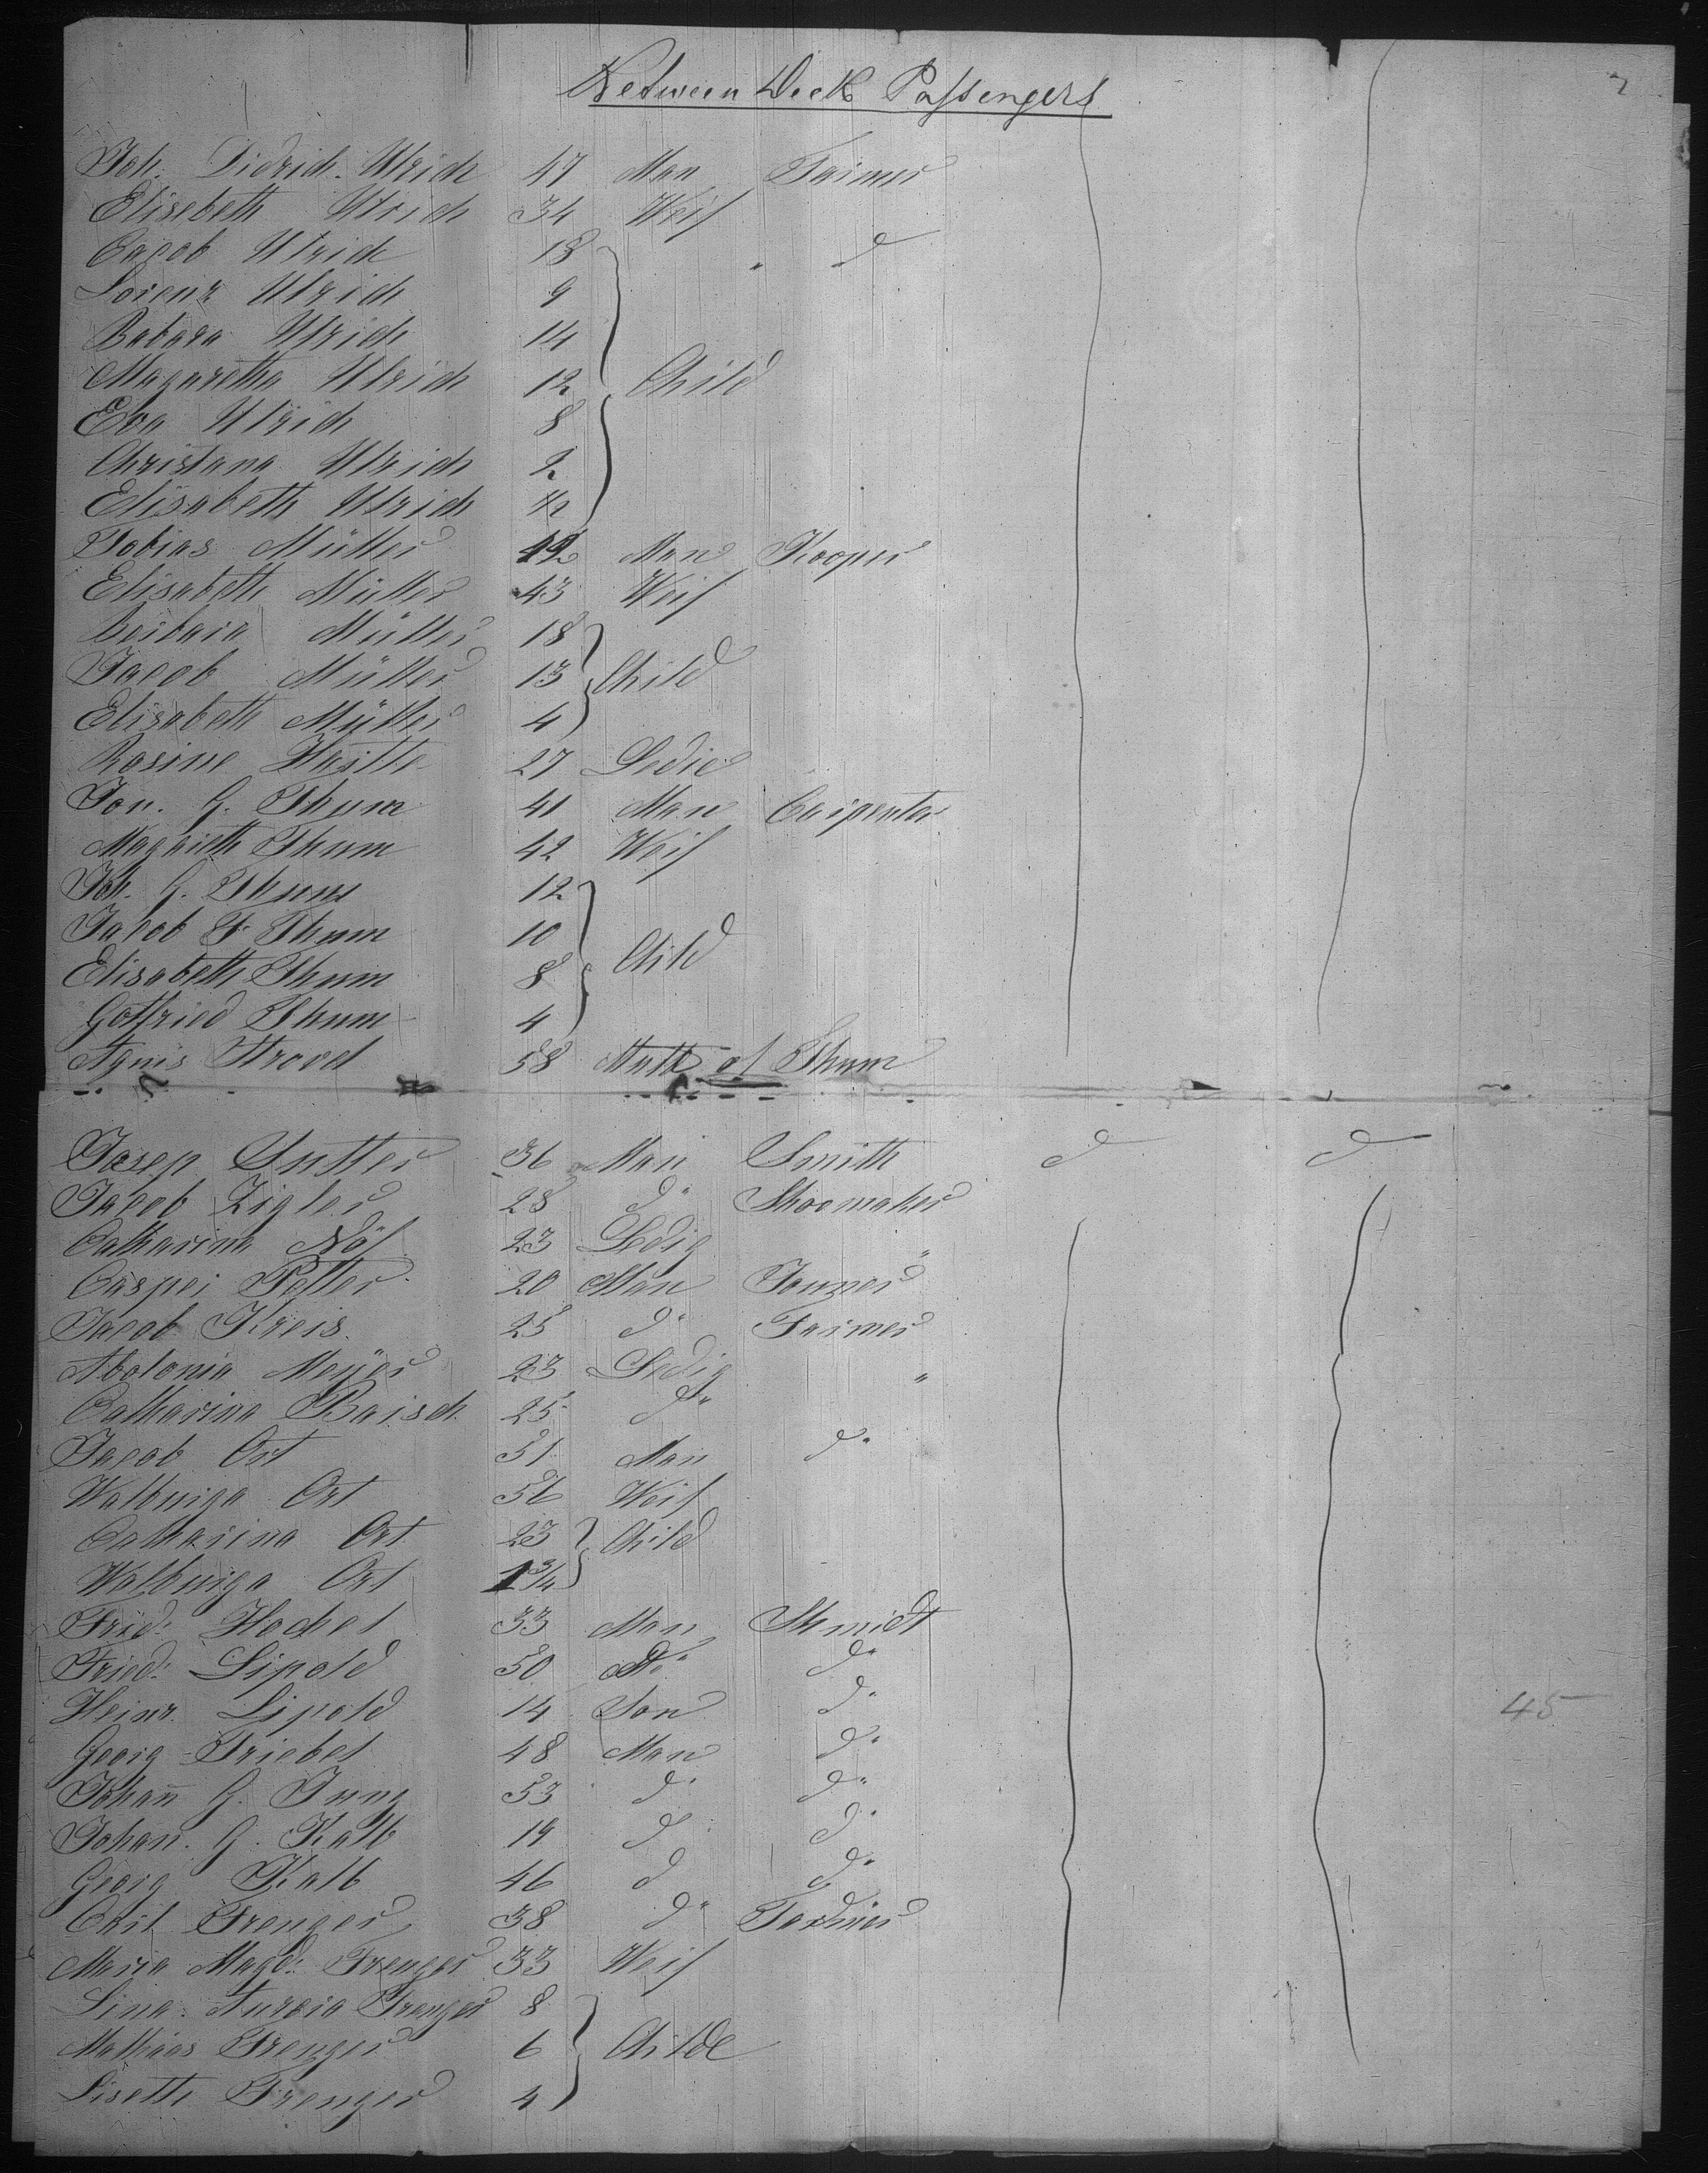 Between Deck Passengers
Joh. Didrich Ulrich 47 Man Farmer
Elisebeth Ulrich 34 Weif
Jacob Ulrich 18 " d
Lorenz Ulrich 9
Babara Ulrich 14
Magaretha Ulrich 12 Child
Eva Ulrich 8
Christana Ulrich 2
Elisabeth Ulrich
Tobias Müller 42 Man Kooper
Elisabeth Müller 43 Weif
Barbara Müller 18
Jacob Müller 13 Child
Elisabeth Müller 4
Rosine 27 Ledie
Joh. G. Thum 41 Man Carpenter
Magareth Thum 42 Weif
Joh. G. Thum 12
Jacob F Thum 10
Elisabeth Thum 8 Child
Gottfried Thum 4
Agnis 58 of Thum
Josep Sutter 36 Man Smith d d
Jacob Zigler 28 do Shoemaker
Catharina Nöf 23 Ledig "
Casper Potter 20 Man
Jacob Kreis 25 do Farmer
Abolonia Meyer 23 Ledig "
Catharina Baisch 25 do
Jacob Ort 51 Man do
Walburga Ort 56 Weif
Catharina Ort 23 Child
Walburga Ort 1 3/4
Fried: Hochel 33 Man Shmidt
Fried: Lipold 50 do do
Heinr. Lipold 14 Son do 45
Georg Friebel 48 Man do
Johañ G. Jung 53 do do
Johan. G. Kalb 19 d do
Georg Kalb 46 d do
Carl Frenger 38 do
Maria Magd: Frenger 33 Weif
Lina Frenger 8
Mathias Frenger 6 Childe
Lisette Frenger 4